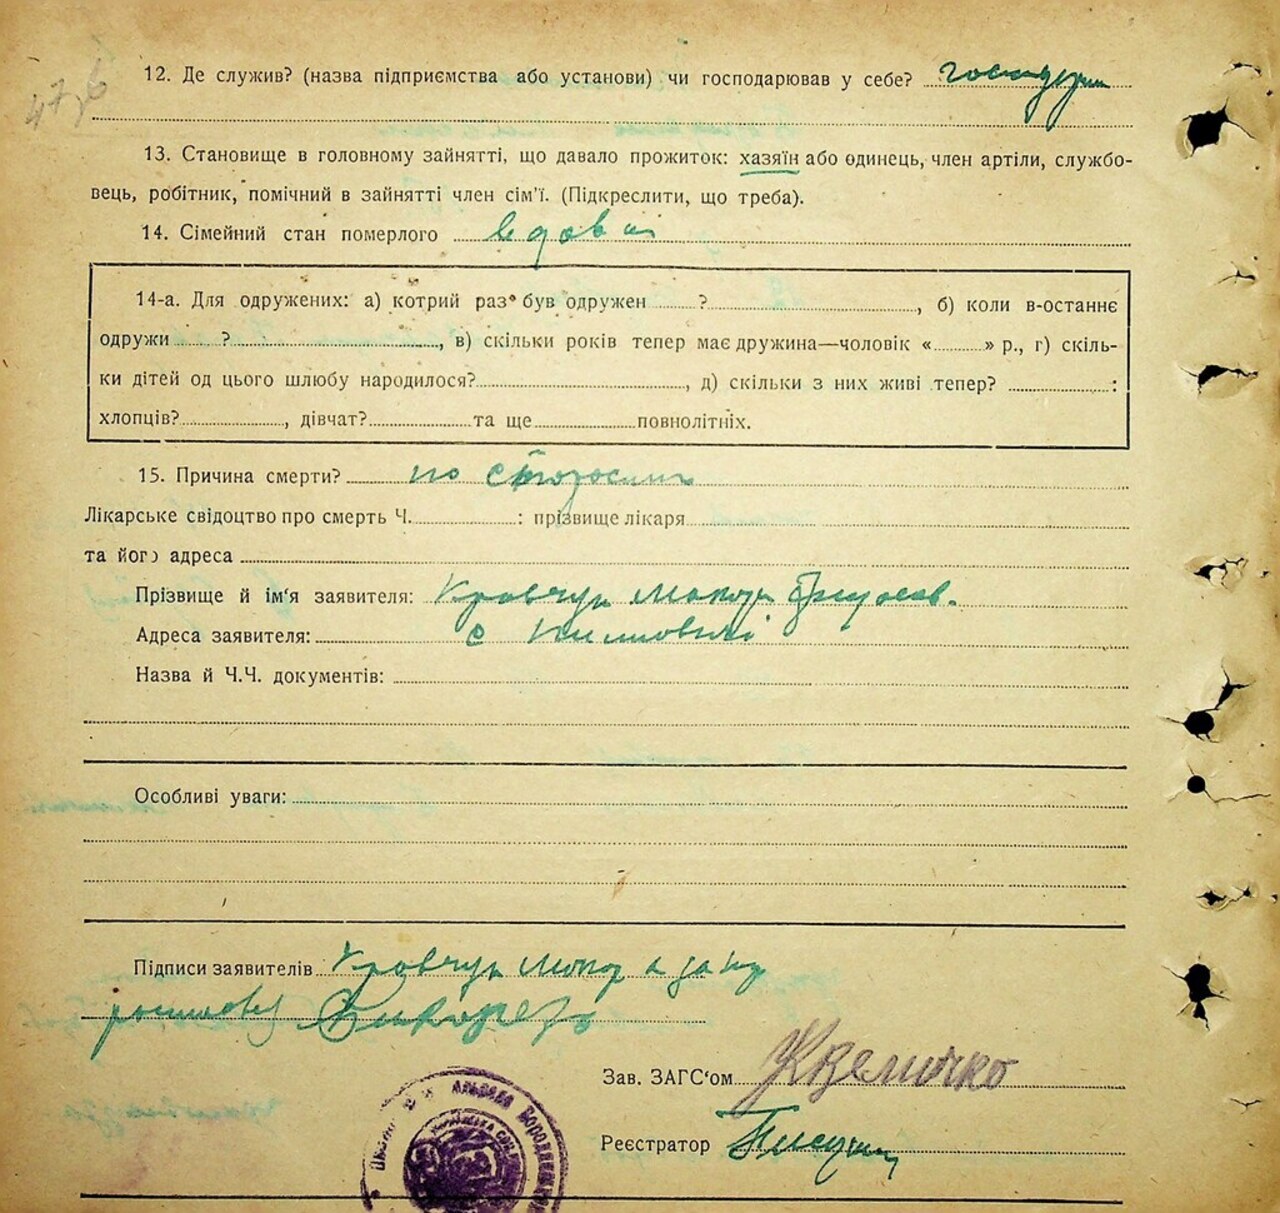 476
12. Де служив? (назва підприємства або установи) чи господарював у себе?
13. Становище в головному зайнятті, що давало прожиток: хазяїн або одинець, член артіли, службо-
вець, робітник, помічний в зайнятті член сім'ї. (Підкреслити, що треба).
14. Сімейний стан померлого
14-а. Для одружених: а) котрий раз був одружен ? , б) коли в-останнє
одружи ? , в) скільки років тепер має дружина—чоловік « » р., г) скіль-
ки дітей од цього шлюбу народилося? , д) скільки з них живі тепер? :
хлопців? , дівчат? та ще повнолітніх.
15. Причина смерти? по
Лікарське свідоцтво про смерть Ч. : прізвище лікаря
та його адреса
Прізвище й ім'я заявителя: Кравчук
Адреса заявителя: с
Назва й Ч.Ч. документів:
Особливі уваги:
Підписи заявителів Кравчук
Зав. ЗАГС'ом Величко
Реєстратор